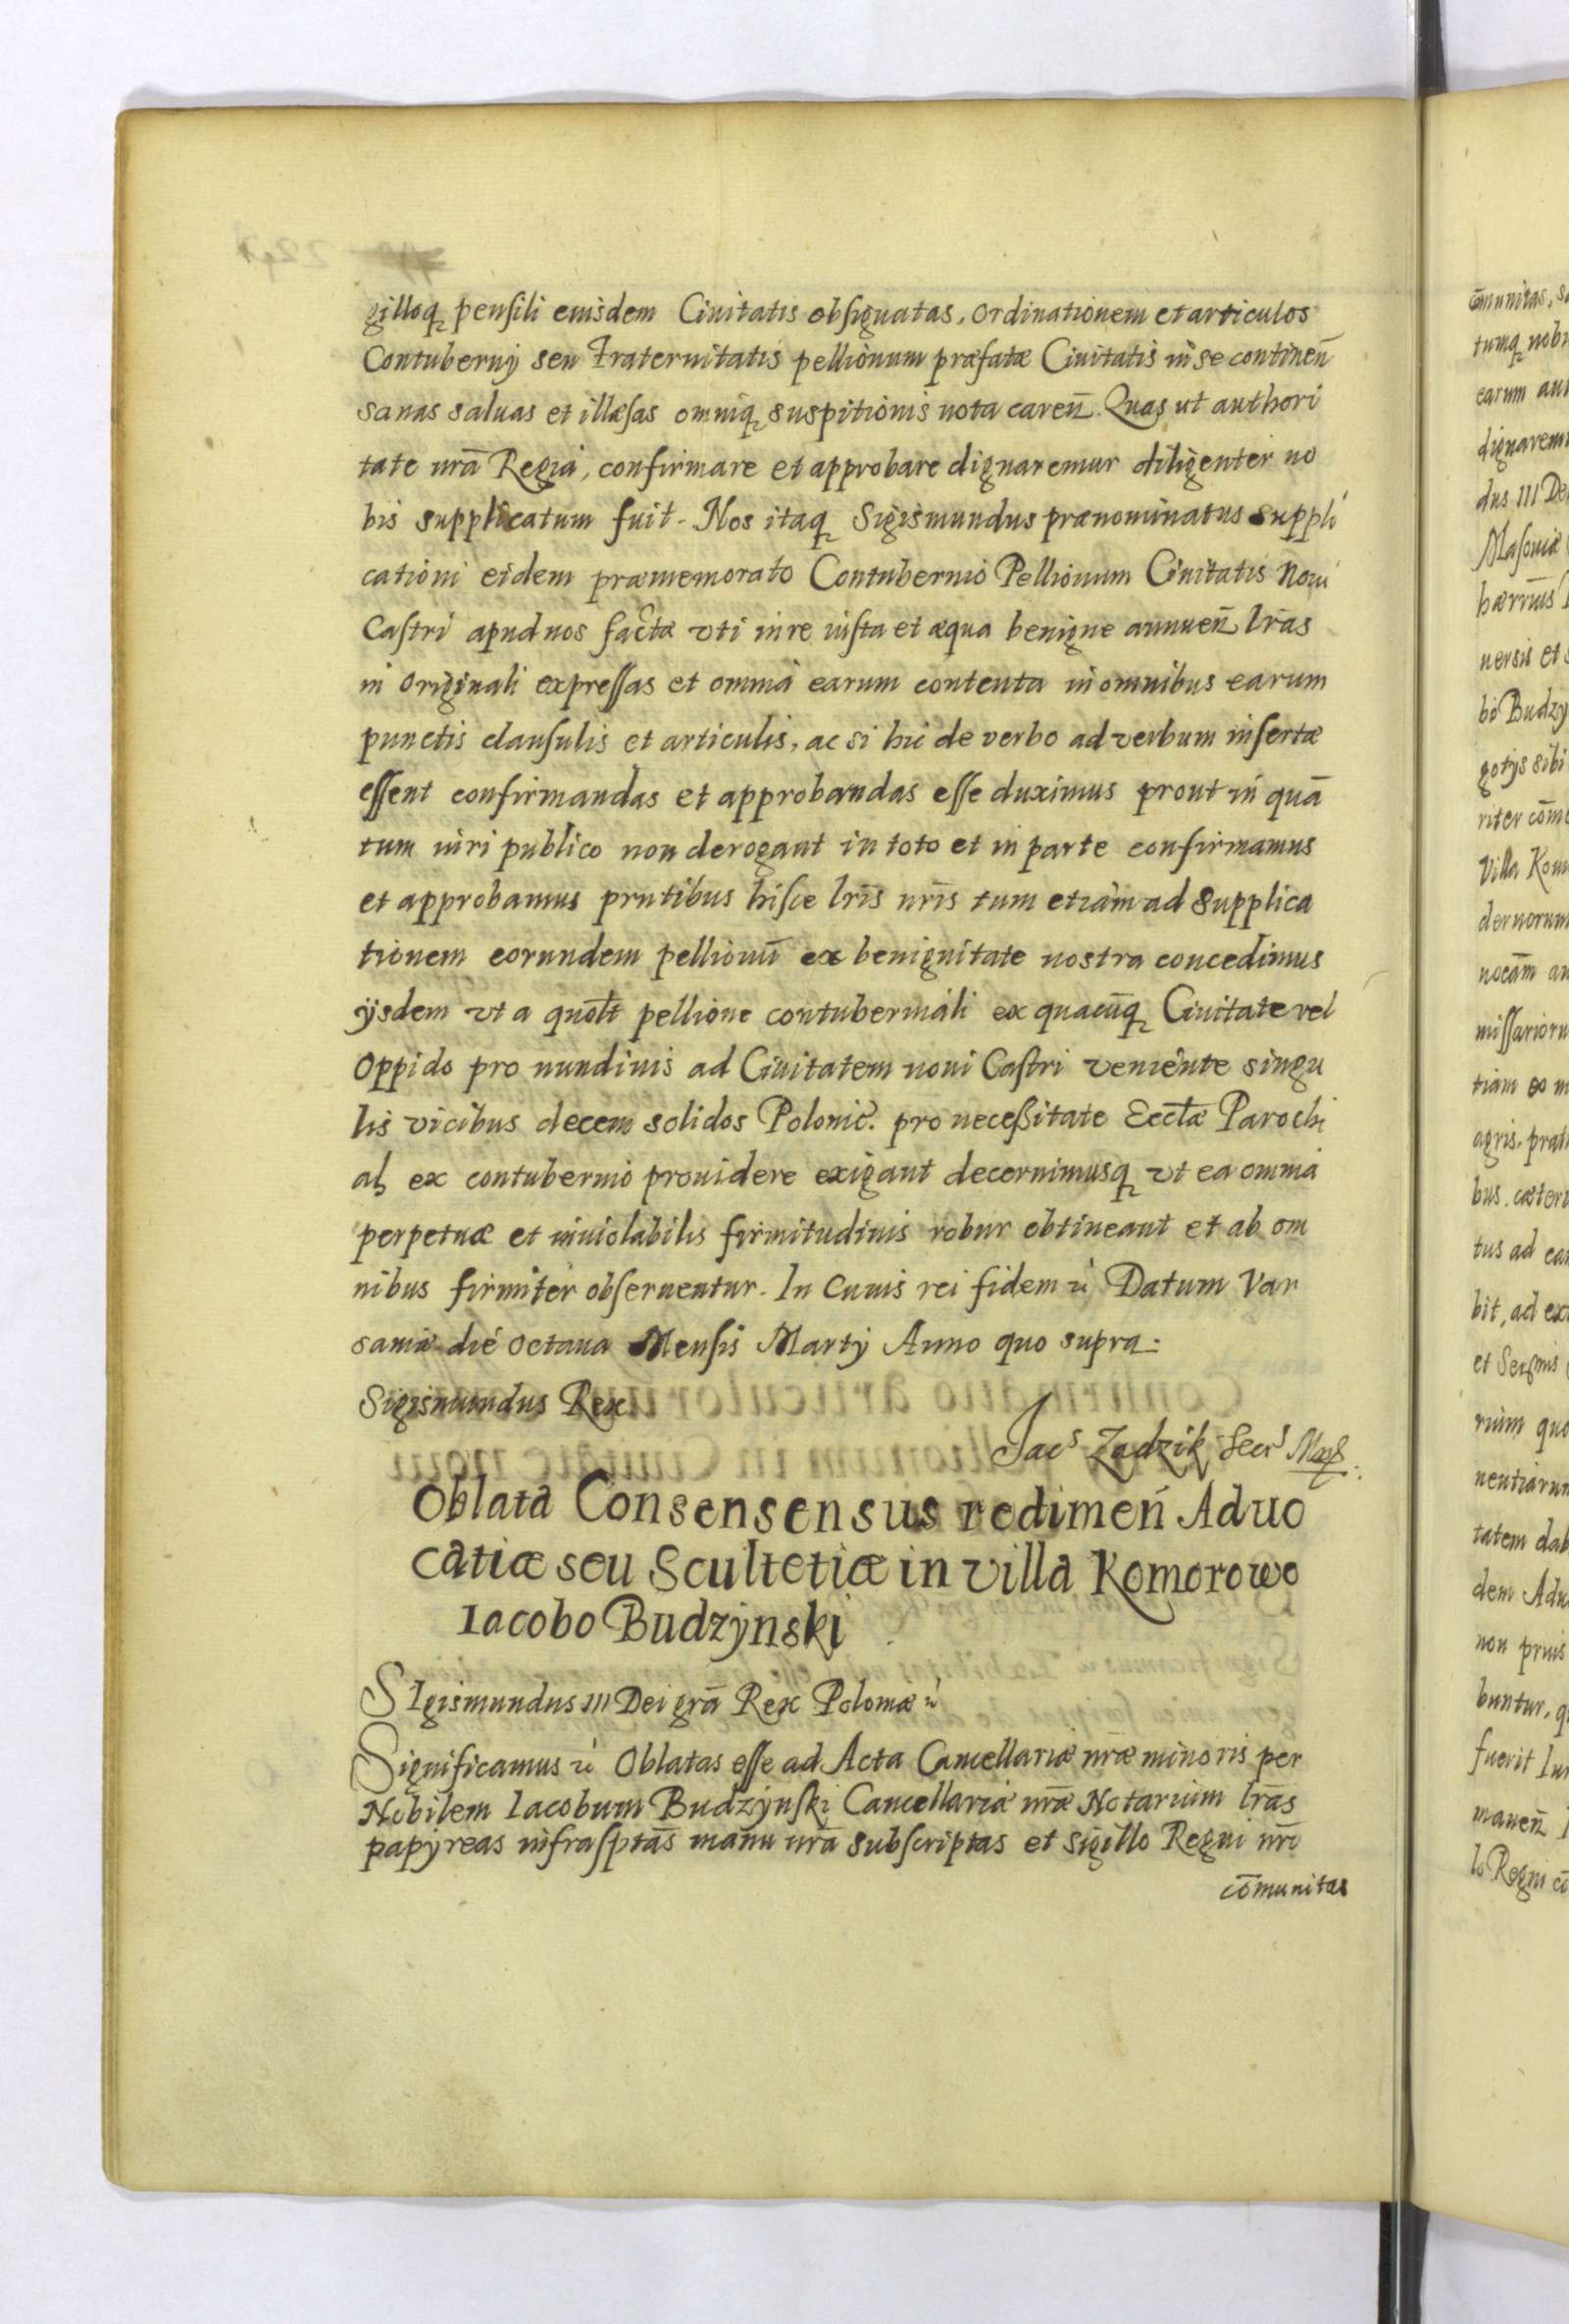 gilloq₃ pensili eiusdem Ciuitatis obsignatas, ordinationem et articulos
Contubernij seu Fraternitatis pellionum præfatæ Ciuitatis in se continen̄
sanas saluas et illæsas omniq₃ suspitionis nota caren̄. Quas ut authori
tate nr̄a Regia, confirmare et approbare dignaremur diligenter no
bis supplicatum fuit. Nos itaq₃ Sigismundus prænominatus suppli
cationi eidem præmemorato Contubernio Pellionum Ciuitatis Noui
Castri apud nos factæ vti in re iusta et æqua benigne annuen̄ lr̄as
in originali expressas et omnia earum contenta in omnibus earum
punctis clausulis et articulis, ac si hic de verbo ad verbum insertæ
essent confirmandas et approbandas esse duximus prout in quā
tum iuri publico non derogant in toto et in parte confirmamus
et approbamus prntibus hisce lr̄is nr̄is tum etiam ad supplica
tionem eorundem pellionū ex benignitate nostra concedimus
ijsdem vt a quōlt pellione contubernali ex quacūq₃ Ciuitate vel
oppido pro nundinis ad Ciuitatem noui Castri veniente singu
lis vicibus decem solidos Polonic. pro necessitate Eccłæ Parochi
al₃ ex contubernio prouidere exigant decernimusq₃ vt ea omnia
perpetuæ et inuiolabilis firmitudinis robur obtineant et ab om
nibus firmiter obseruentur. In cuius rei fidem &c Datum Var
sauiæ die octaua Mensis Martij Anno quo supra.
Sigismundus Rex
Jacs Zadzik Secr
Oblata Consensensus redimen̄ Aduo
catiæ seu Scultetiæ in villa Komorowo
Iacobo Budzÿnski
SIgismundus III Dei grā Rex Poloniæ &c
Significamus &c Oblatas esse ad Acta Cancellariæ nr̄æ minoris per
Nobilem Iacobum Budzÿnski Cancellariæ nr̄æ Notarium lr̄as
papÿreas infrasptās manu nr̄a subscriptas et sigillo Regni nr̄i
cōmunitas
cōmunitas, s
tumq₃ nob
earum au
dignarem
dus III De
Masouiæ
hærr̄mis
uersis et
bo Budzÿ
gotijs sibi
riter cōm
villa Kom
dernorum
nocām an
missarioru
tiam eo m
agris, prat
bus, cæter
tus ad ea
bit, ad ex
et Serm̄is
rium quo
nentiarum
tatem dab
dem Adu
non pruis
buntur, q
fuerit In
manen̄
lo Regni cō